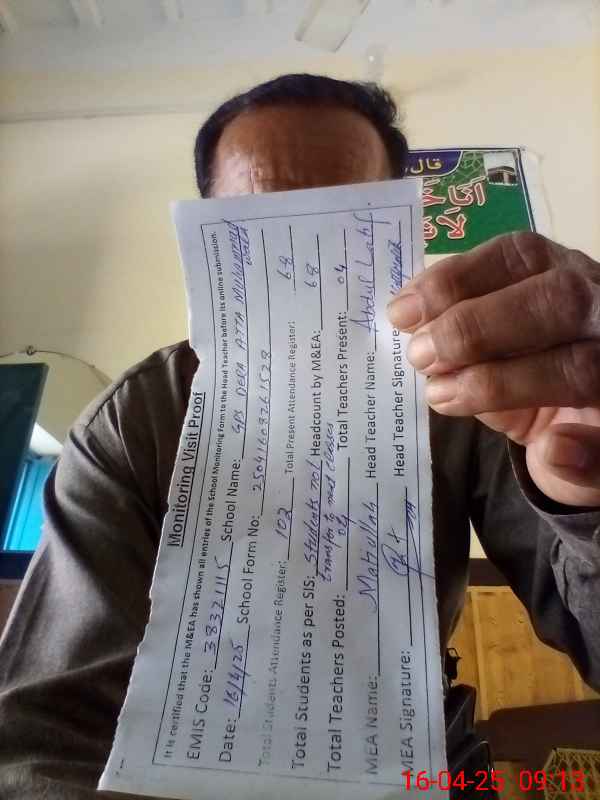 Monitoring Visit Proof
It is certified that the M&EA has shown all entries of the School Monitoring Form to the Head Teacher before its online submission.
EMIS Code: 38321115 School Name: GPS DERA ATTA MUHAMMAD WALA
Date: 16/4/25 School Form No: 25041609261528
Total Students Attendance Register: 102 Total Present Attendance Register: 68
Total Students as per SIS: Students not transfer to next classes Headcount by M&EA: 68
Total Teachers Posted: 04 Total Teachers Present: 04
MEA Name: Matiullah Head Teacher Name: Abdul Latif
MEA Signature: Head Teacher Signature:
قال
16-04-25 09:13